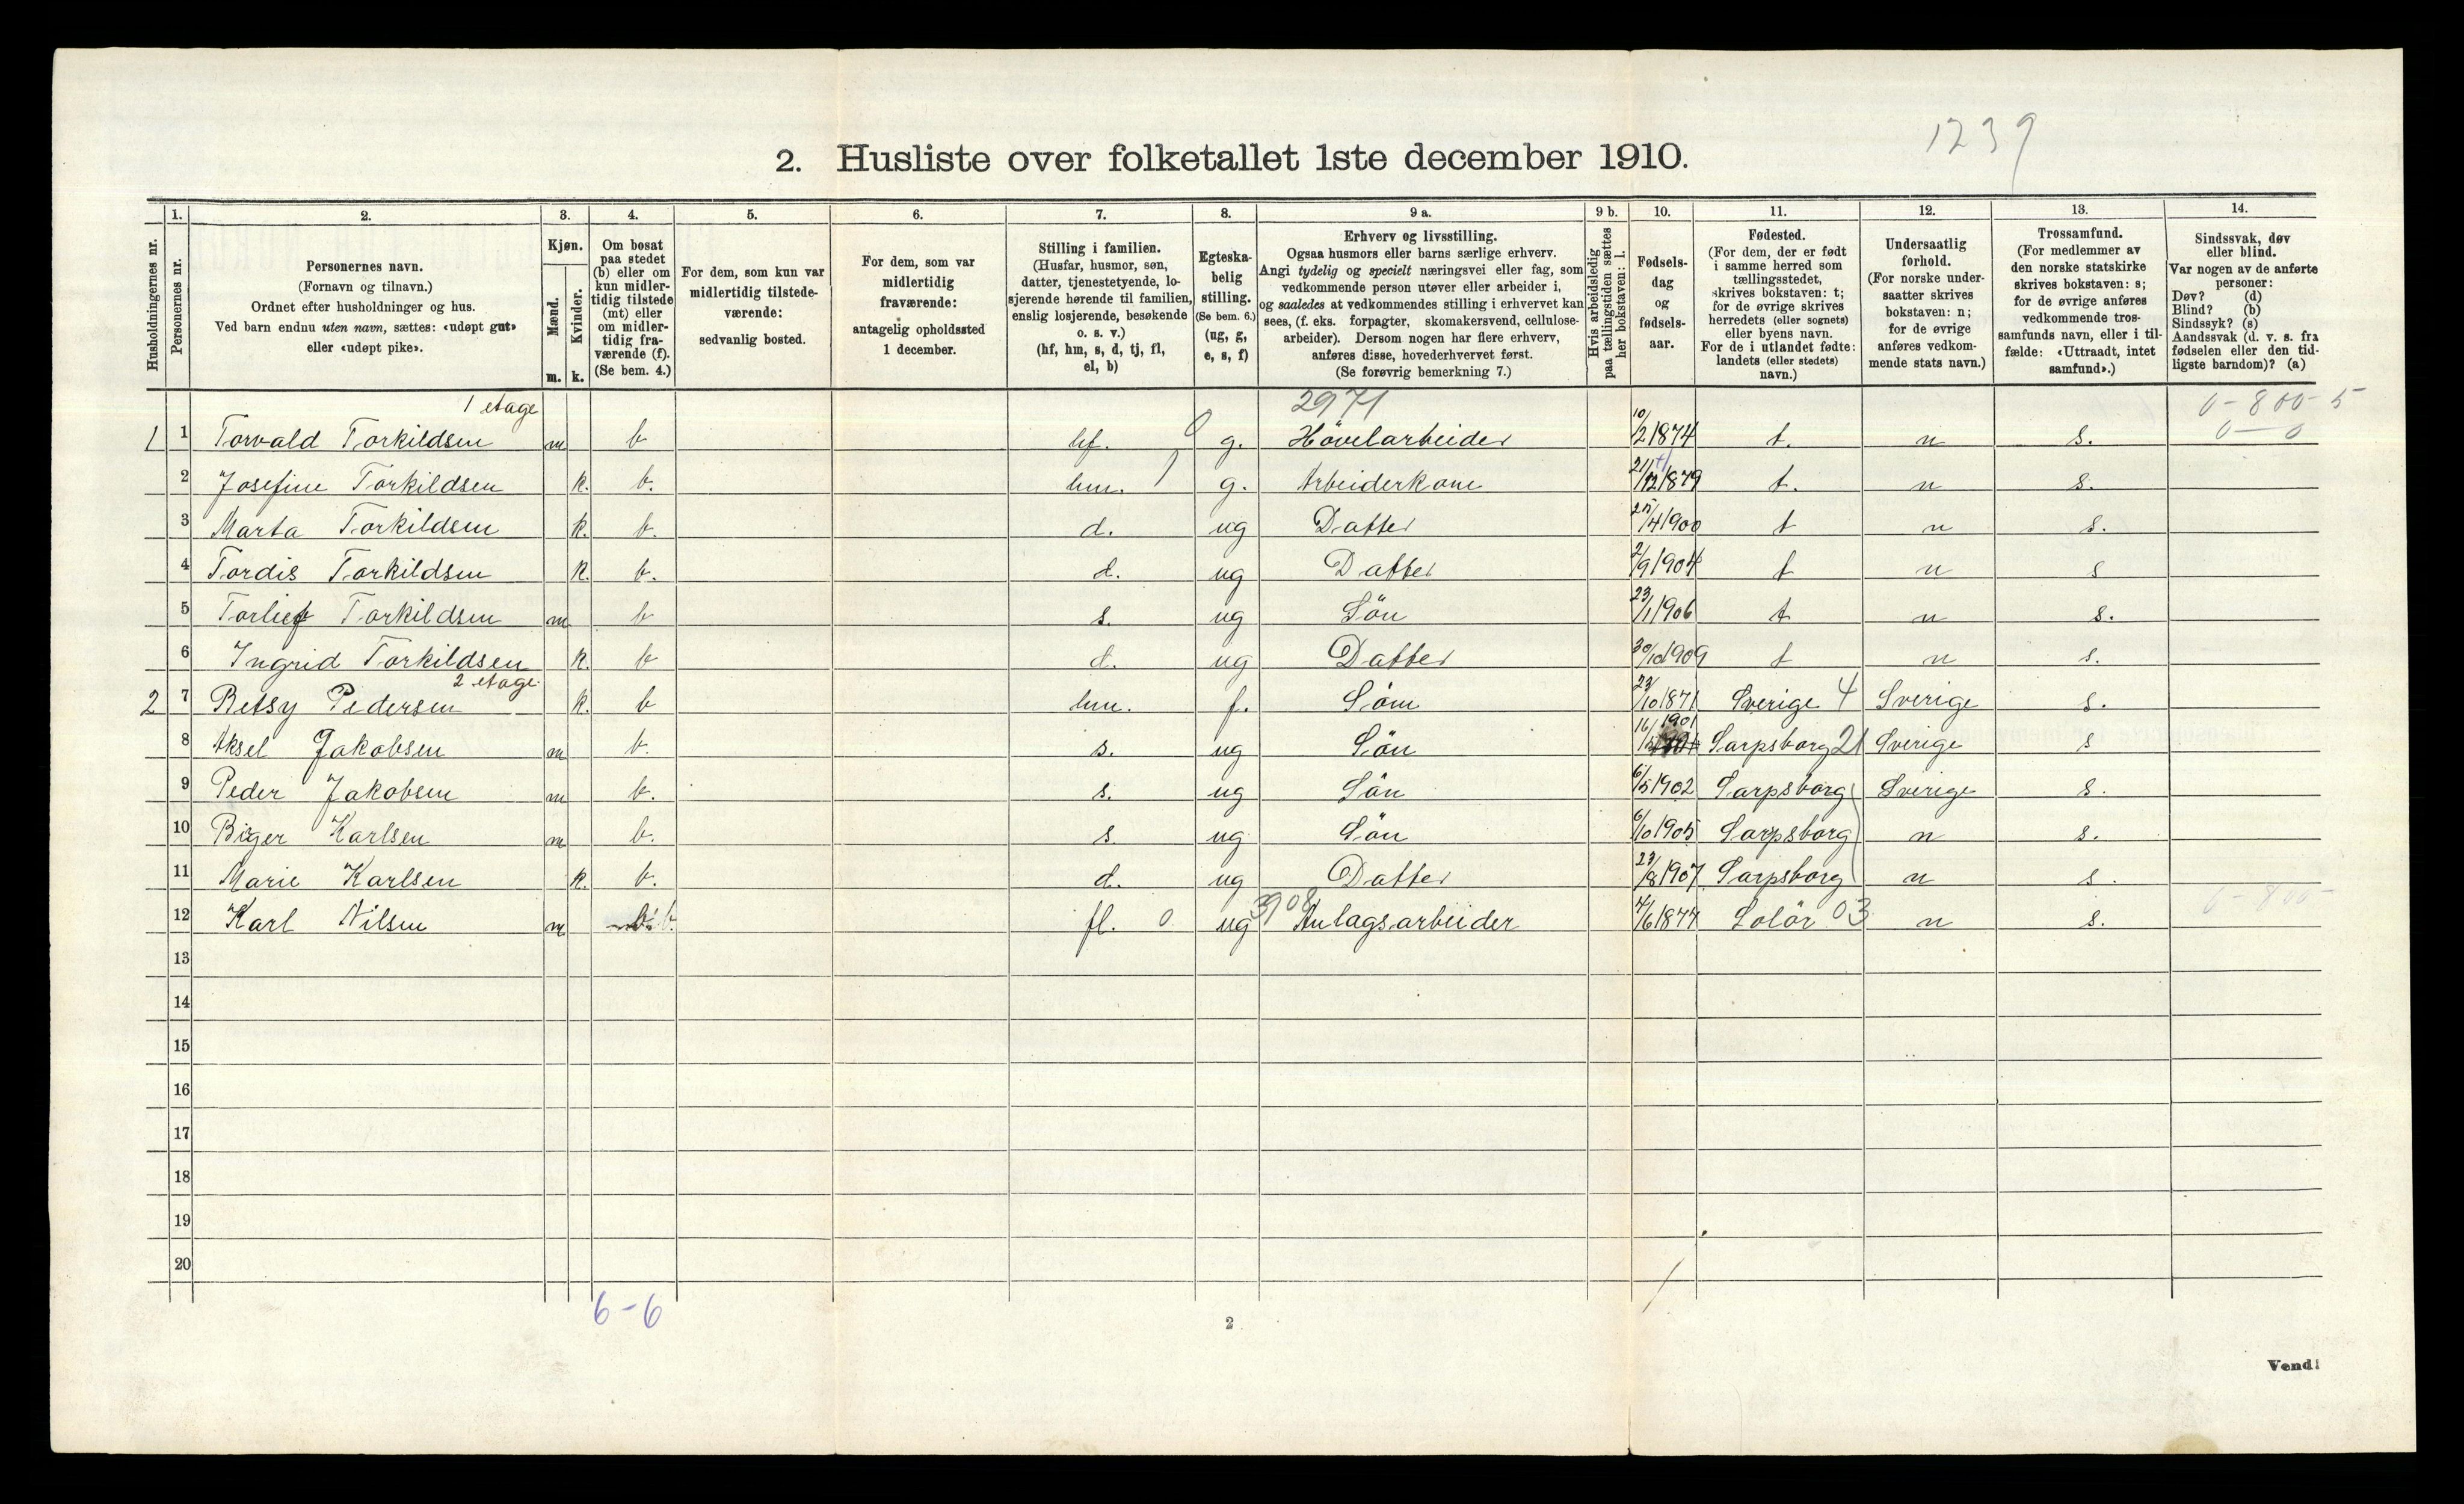 1239
2. Husliste over folketallet 1ste december 1910.
Husholdningernes nr. | 1. Personernes nr. | 2. Personernes navn. (Fornavn og tilnavn.) Ordnet efter husholdninger og hus. Ved barn endnu uten navn, sættes: «udøpt gut» eller «udøpt pike». | 3. Kjøn. Mænd. m. Kvinder. k. | 4. Om bosat paa stedet (b) eller om kun midlertidig tilstede (mt) eller om midlertidig fraværende (f). (Se bem. 4.) | 5. For dem, som kun var midlertidig tilstedeværende: sedvanlig bosted. | 6. For dem, som var midlertidig fraværende: antagelig opholdssted 1 december. | 7. Stilling i familien. (Husfar, husmor, søn, datter, tjenestetyende, losjerende hørende til familien, enslig losjerende, besøkende o. s. v.) (hf, hm, s, d, tj, fl, el, b) | 8. Egteskabelig stilling. (Se bem. 6.) (ug, g, e, s, f) | 9 a. Erhverv og livsstilling. Ogsaa husmors eller barns særlige erhverv. Angi tydelig og specielt næringsvei eller fag, som vedkommende person utøver eller arbeider i, og saaledes at vedkommendes stilling i erhvervet kan sees, (f. eks. forpagter, skomakersvend, cellulosearbeider). Dersom nogen har flere erhverv, anføres disse, hovederhvervet først. (Se forøvrig bemerkning 7.) | 9 b. Hvis arbeidsledig paa tællingstiden sættes her bokstaven: l. | 10. Fødselsdag og fødselsaar. | 11. Fødested. (For dem, der er født i samme herred som tællingsstedet, skrives bokstaven: t; for de øvrige skrives herredets (eller sognets) eller byens navn. For de i utlandet fødte: landets (eller stedets) navn.) | 12. Undersaatlig forhold. (For norske undersaatter skrives bokstaven: n; for de øvrige anføres vedkommende stats navn.) | 13. Trossamfund. (For medlemmer av den norske statskirke skrives bokstaven: s; for de øvrige anføres vedkommende trossamfunds navn, eller i tilfælde: «Uttraadt, intet samfund».) | 14. Sindssvak, døv eller blind. Var nogen av de anførte personer: Døv? (d) Blind? (b) Sindssyk? (s) Aandssvak (d. v. s. fra fødselen eller den tidligste barndom)? (a)
1 etage 2971 0-800-5
1 1 Torvald Torkildsen m b hf. 0 g. Hövelarbeider 10/2 1874 t. n s. 0-0
2 Josefine Torkildsen k. b. hm. 1 g. Arbeiderkone 21/12 1879 t. n s.
3 Marta Torkildsen k. b. d. ug Datter 25/4 1900 t n s.
4 Tordis Torkildsen k. b. d. ug Datter 2/9 1904 t n s
5 Torlief Torkildsen m b s. ug Sön 23/1 1906 t n s.
6 Ingrid Torkildsen k. b d. ug Datter 30/10 1909 t n s.
2 etage.
2 7 Betsy Pedersen k. b hm. f. Söm 23/10 1871 Sverige 4 Sverige s.
8 Aksel Jakobsen m b. s. ug Sön 16/ 1901 Sarpsborg 21 Sverige s
9 Peder Jakobsen m b. s. ug Sön 6/5 1902 Sarpsborg Sverige s.
10 Birger Karlsen m b. s ug Sön 6/10 1905 Sarpsborg n s.
11 Marie Karlsen k. b. d. ug Datter 23/8 1907 Sarpsborg n s.
12 Karl Nilsen m b. fl. 0 ug 3908 Anlagsarbeider 4/6 1877 Solör 03 n s. 0-800-
13
14
15
16
17
18
19
20
6-6
2
Vend!